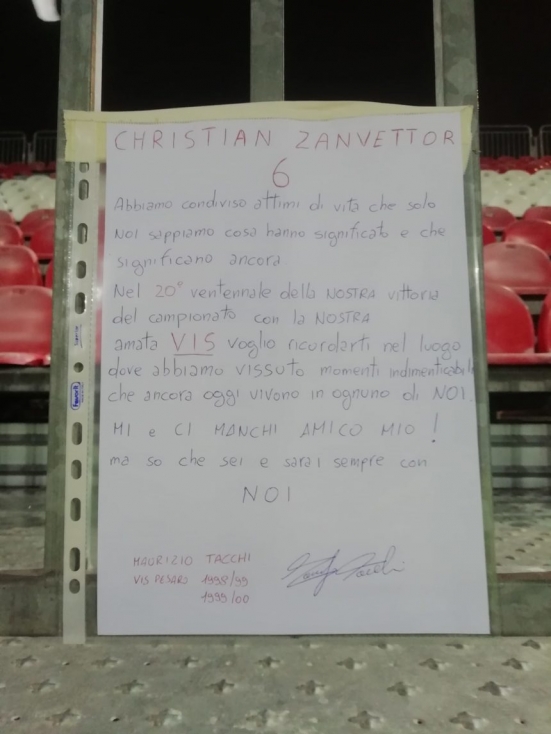 CHRISTIAN ZANVETTOR
6
Abbiamo condiviso attimi di vita che solo
NOI sappiamo cosa hanno significato e che
significano ancora
Nel 20° ventennale della NOSTRA vittoria
del campionato con la NOSTRA
amata VIS voglio ricordarti nel luogo
dove abbiamo VISSUTO momenti indimenticabili
che ancora oggi vivono in ognuno di NOI.
MI e CI MANCHI AMICO MIO!
ma so che sei e sarai sempre con
NOI
MAURIZIO TACCHI
VIS PESARO 1998/99
1999/00